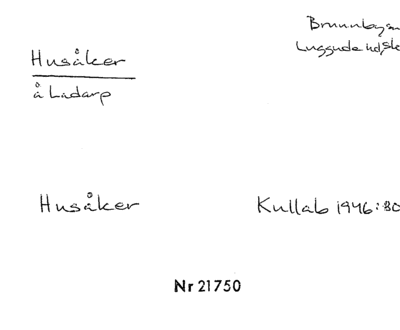 Brunnby
Luggude
Husåker
å Ladarp
Husåker Kullab 1946:80
Nr 21750